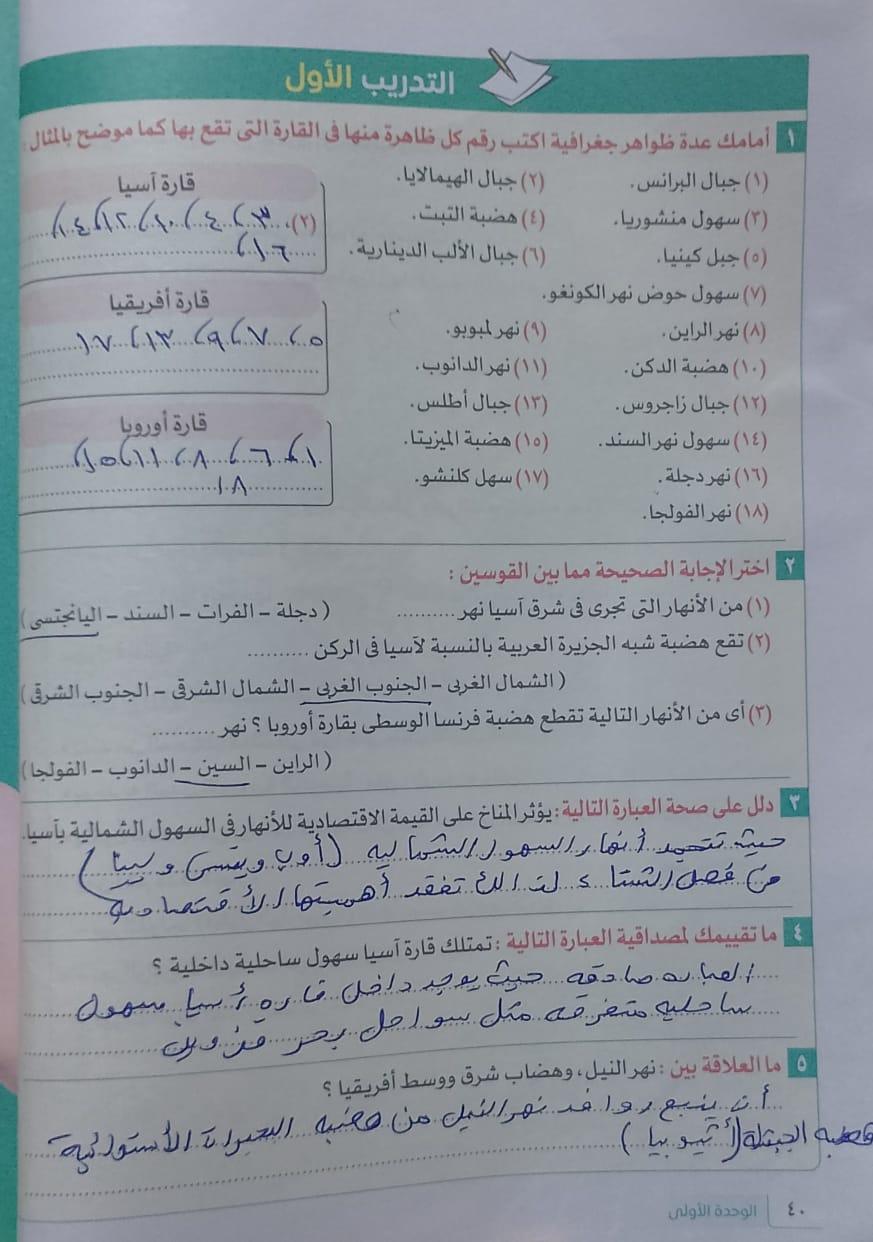 التدريب الأول
١ أمامك عدة ظواهر جغرافية اكتب رقم كل ظاهرة منها فى القارة التى تقع بها كما موضح بالمثال :
(١) جبال البرانس. (٢) جبال الهيمالايا.
(٣) سهول منشوريا. (٤) هضبة التبت.
(٥) جبل كينيا. (٦) جبال الألب الدينارية.
(٧) سهول حوض نهر الكونغو.
(٨) نهر الراين. (٩) نهر لمبوبو.
(١٠) هضبة الدكن. (١١) نهر الدانوب.
(١٢) جبال زاجروس. (١٣) جبال أطلس.
(١٤) سهول نهر السند. (١٥) هضبة الميزيتا.
(١٦) نهر دجلة. (١٧) سهل كلنشو.
(١٨) نهر الفولجا.
قارة آسيا
(٢)، ٣، ٤، ١٠، ١٢، ١٤،
١٦،
قارة أفريقيا
٥، ٧، ٩، ١٣، ١٧
قارة أوروبا
١، ٦، ٨، ١١، ١٥،
١٨
٢ اختر الإجابة الصحيحة مما بين القوسين :
(١) من الأنهار التى تجرى فى شرق آسيا نهر .......... ( دجلة - الفرات - السند - اليانجتسى )
(٢) تقع هضبة شبه الجزيرة العربية بالنسبة لآسيا فى الركن ..........
( الشمال الغربى - الجنوب الغربى - الشمال الشرقى - الجنوب الشرقى )
(٣) أى من الأنهار التالية تقطع هضبة فرنسا الوسطى بقارة أوروبا ؟ نهر ..........
( الراين - السين - الدانوب - الفولجا )
٣ دلل على صحة العبارة التالية : يؤثر المناخ على القيمة الاقتصادية للأنهار فى السهول الشمالية بآسيا.
حيث تتجمد أنهار السهول الشماليه (أوب وينسى ولينا)
من فصل الشتاء لذالك تفقد أهميتها الأقتصاديه
٤ ما تقييمك لمصداقية العبارة التالية : تمتلك قارة آسيا سهول ساحلية داخلية ؟
العباره صادقه حيث يوجد داخل قاره أسيا سهول
ساحليه متفرقه مثل سواحل بحر قزوين
٥ ما العلاقة بين : نهر النيل، وهضاب شرق ووسط أفريقيا ؟
أن ينبع روافد نهر النيل من هضبه البحيرات الأستوائية
هضبه الحبشة (أثيوبيا)
٤٠ الوحدة الأولى